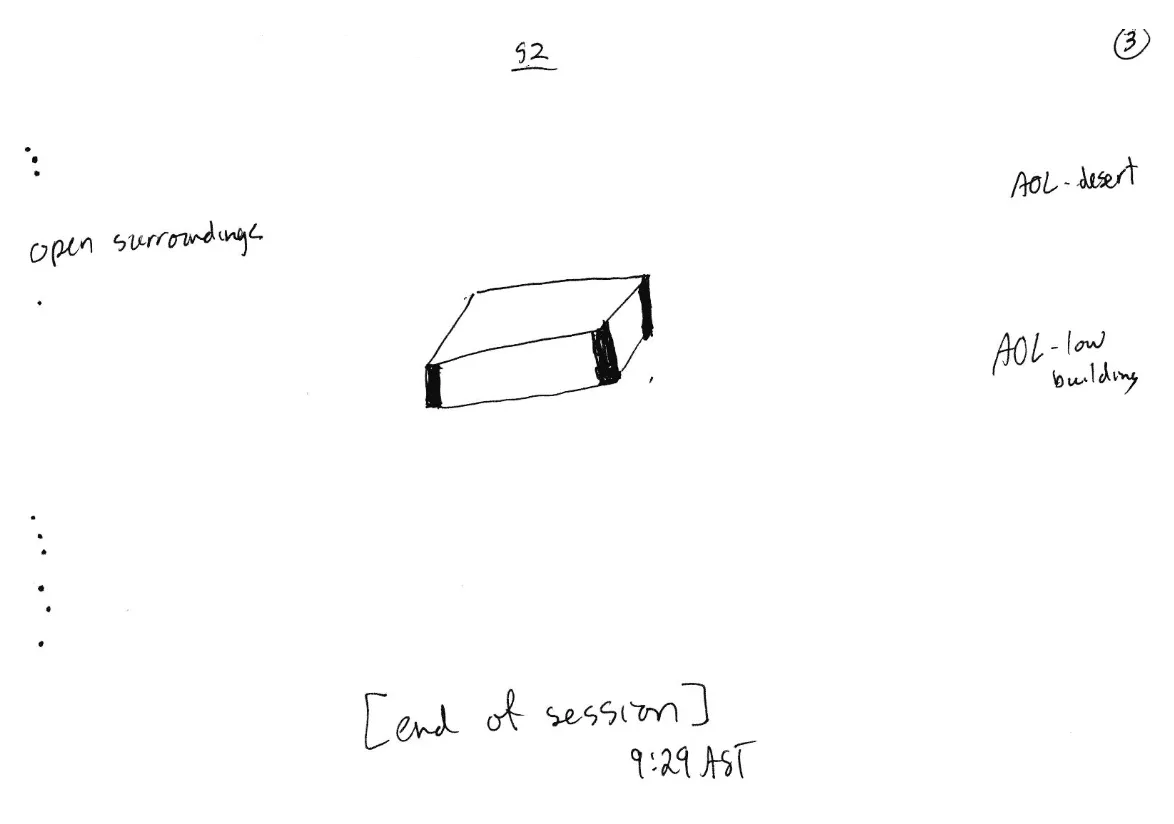 S2
3
AOL - desert
open surroundings
AOL - low
building
[end of session]
9:29 AST